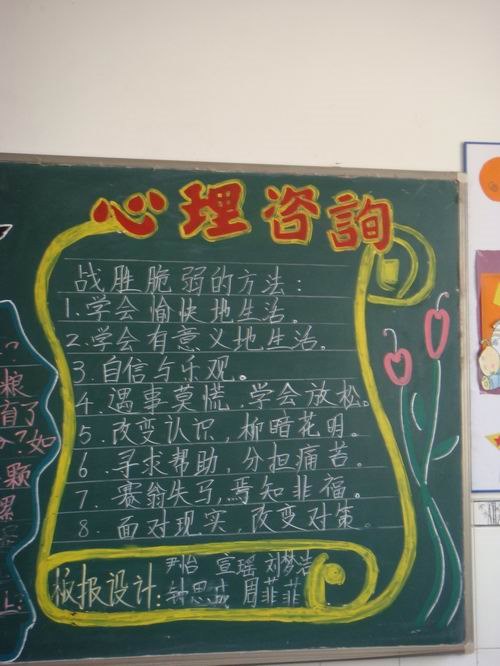 心理咨詢
战胜脆弱的方法:
1.学会愉快地生活。
2.学会有意义地生活。
3.自信与乐观。
4.遇事莫慌,学会放松。
5.改变认识,柳暗花明。
6.寻求帮助,分担痛苦。
7.赛翁失马,焉知非福。
8.面对现实,改变对策。
板报设计:
尹怡 宣瑶 刘梦洁
钟思成 周菲菲
粮
育了
?如
颗
累
上: